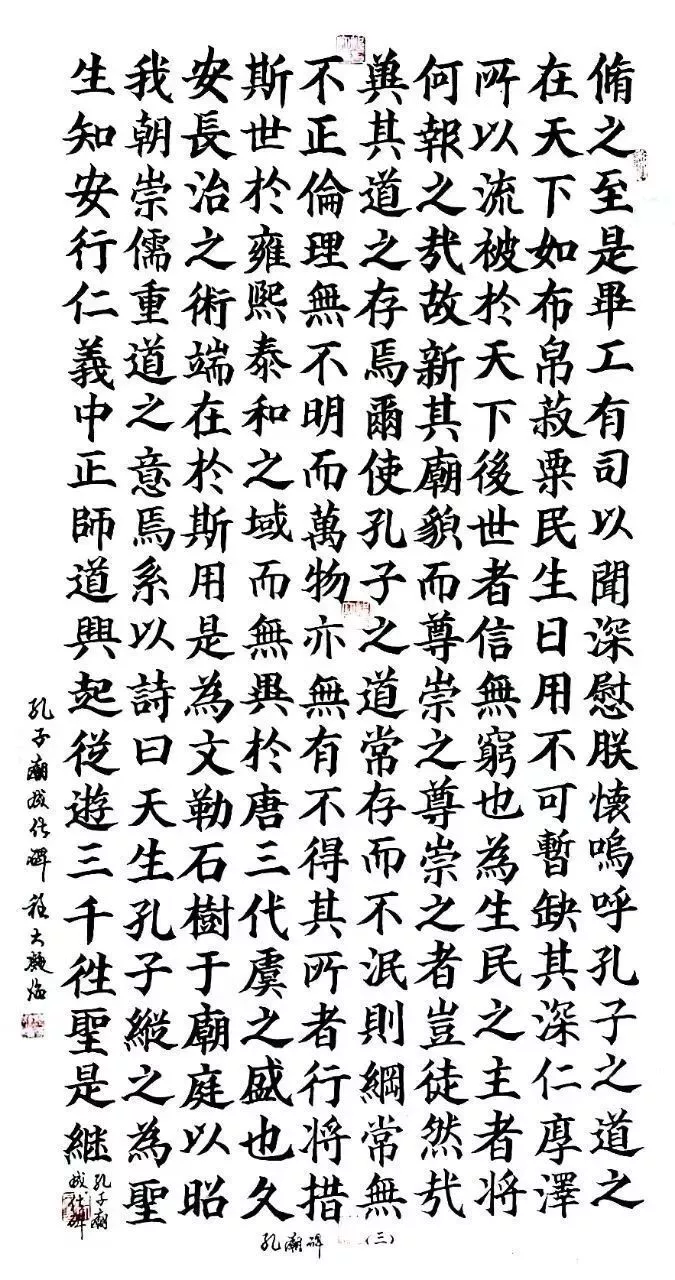 脩之至是畢工有司以聞深慰朕懷嗚呼孔子之道之
在天下如布帛菽粟民生日用不可暫缺其深仁厚澤
所以流被於天下後世者信無窮也為生民之主者將
何報之哉故新其廟貌而尊崇之尊崇之者豈徒然哉
冀其道之存焉爾使孔子之道常存而不泯則綱常無
不正倫理無不明而萬物亦無有不得其所者行将措
斯世於雍熙泰和之域而無異於唐三代虞之盛也久
安長治之術端在於斯用是為文勒石樹于廟庭以昭
我朝崇儒重道之意焉系以詩曰天生孔子縱之為聖
生知安行仁義中正師道興起從遊三千徃聖是継
孔子廟
成化碑
孔子廟成化碑
孔廟碑 (三)